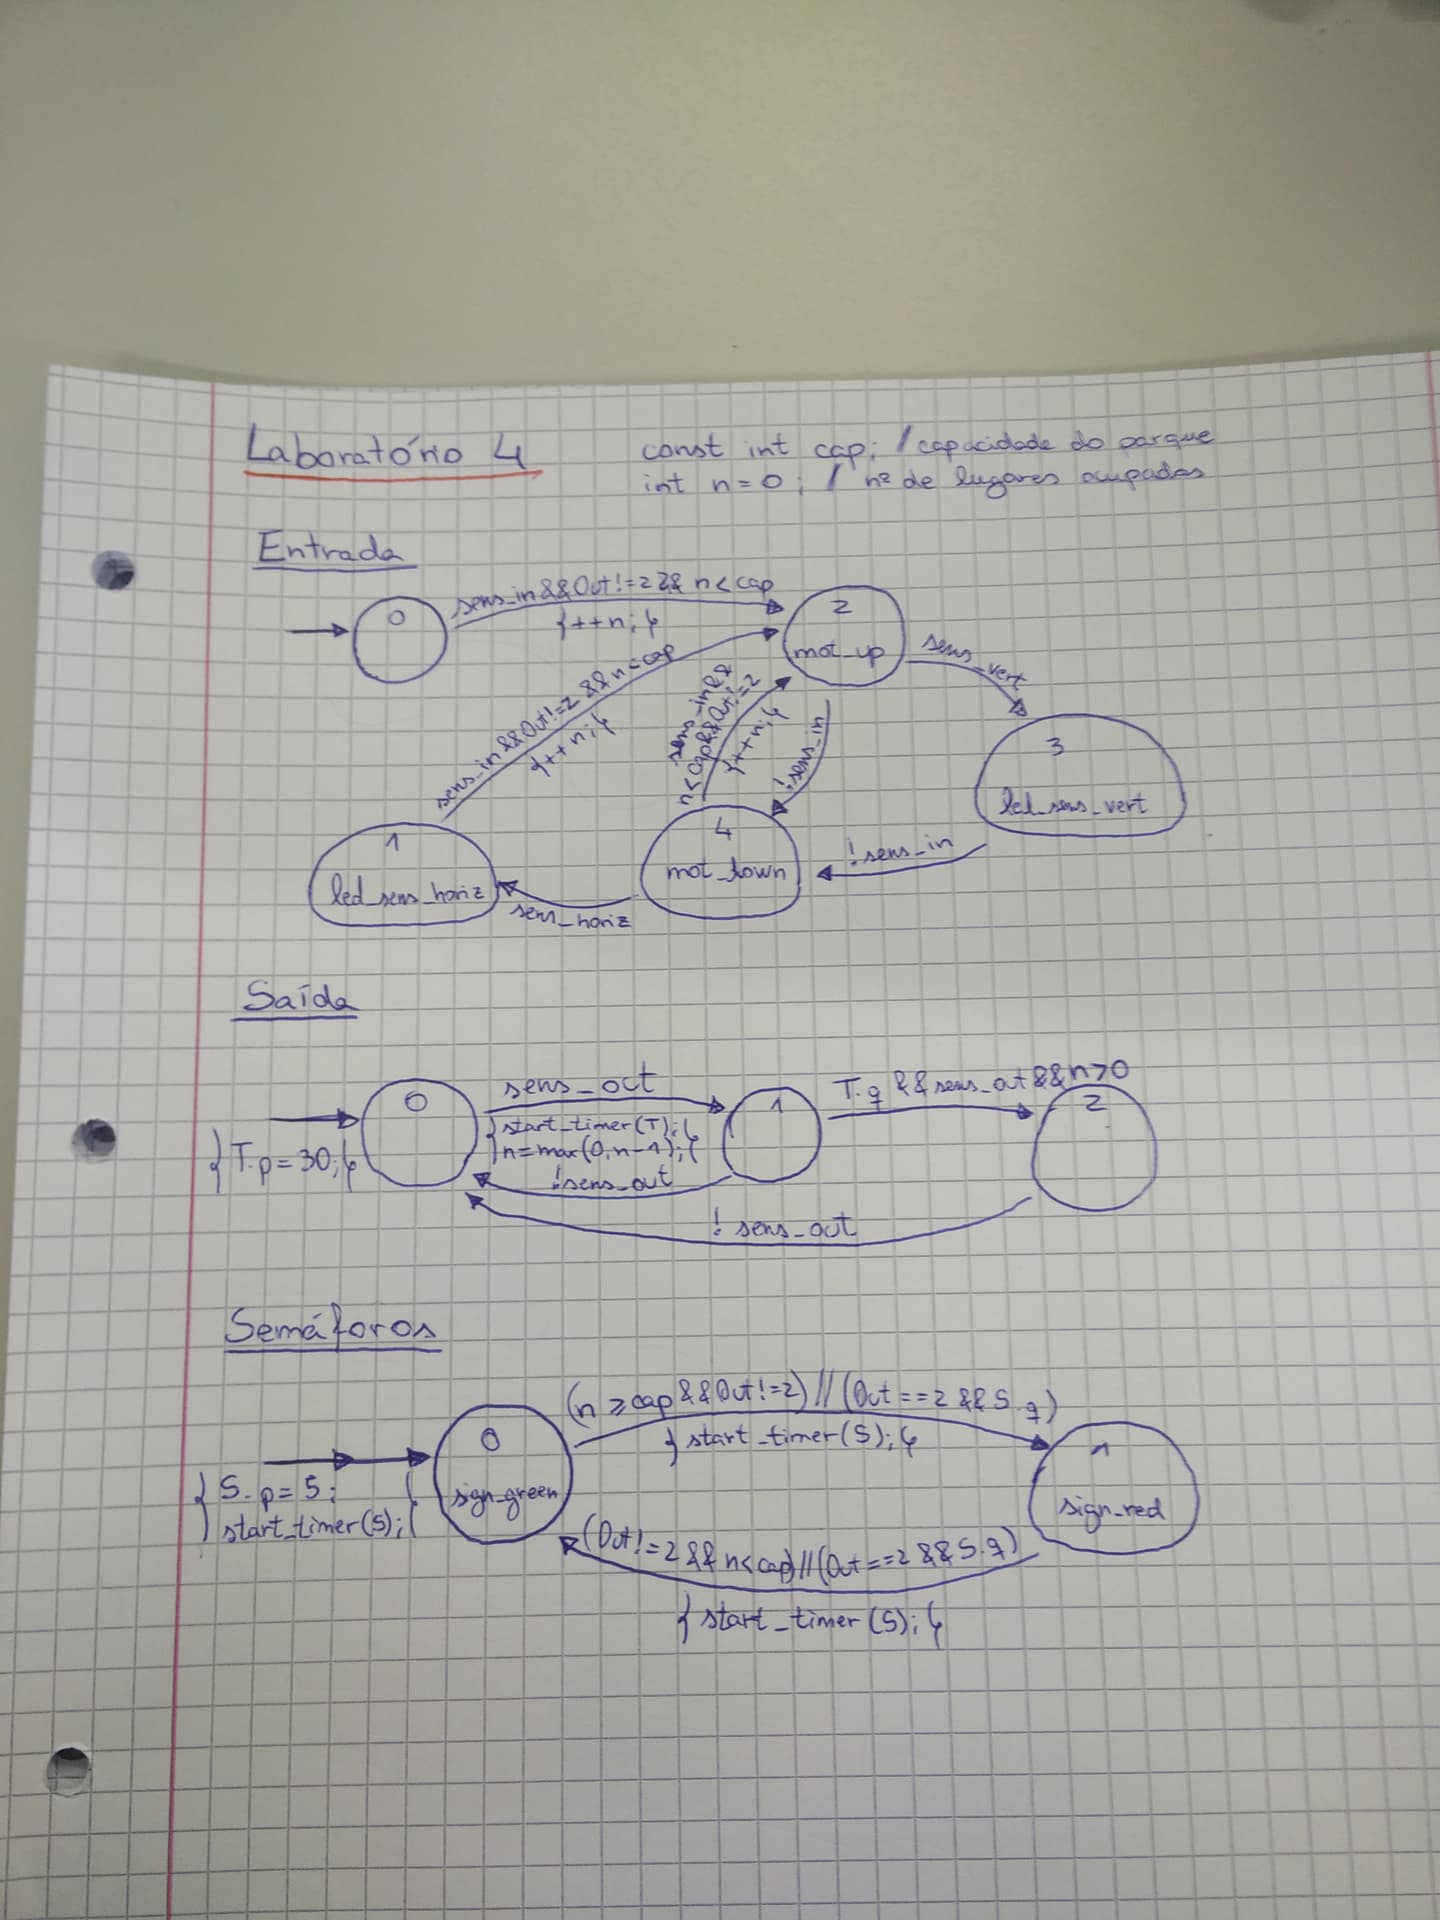 Laboratório 4
const int cap; / capacidade do parque
int n = 0; / nº de lugares ocupados
Entrada
0
sens_in && Out != 2 && n < cap
{++n;}
2
mot_up
sens_vert
3
led_sens_vert
sens_in && Out != 2 && n < cap
{++n;}
sens_in &&
n < cap && Out != 2
{++n;}
!sens_in
4
mot_down
!sens_in
1
led_sens_horiz
sens_horiz
Saída
{T.p = 30;}
0
sens_out
{start_timer(T);}
{n = max(0, n-1);}
!sens_out
1
T.q && sens_out && n>0
2
! sens_out
Semáforos
{S.p = 5;
start_timer(S);}
0
sign_green
(n ≥ cap && Out != 2) || (Out == 2 && S.q)
{start_timer(S);}
1
sign_red
(Out != 2 && n < cap) || (Out == 2 && S.q)
{start_timer(S);}